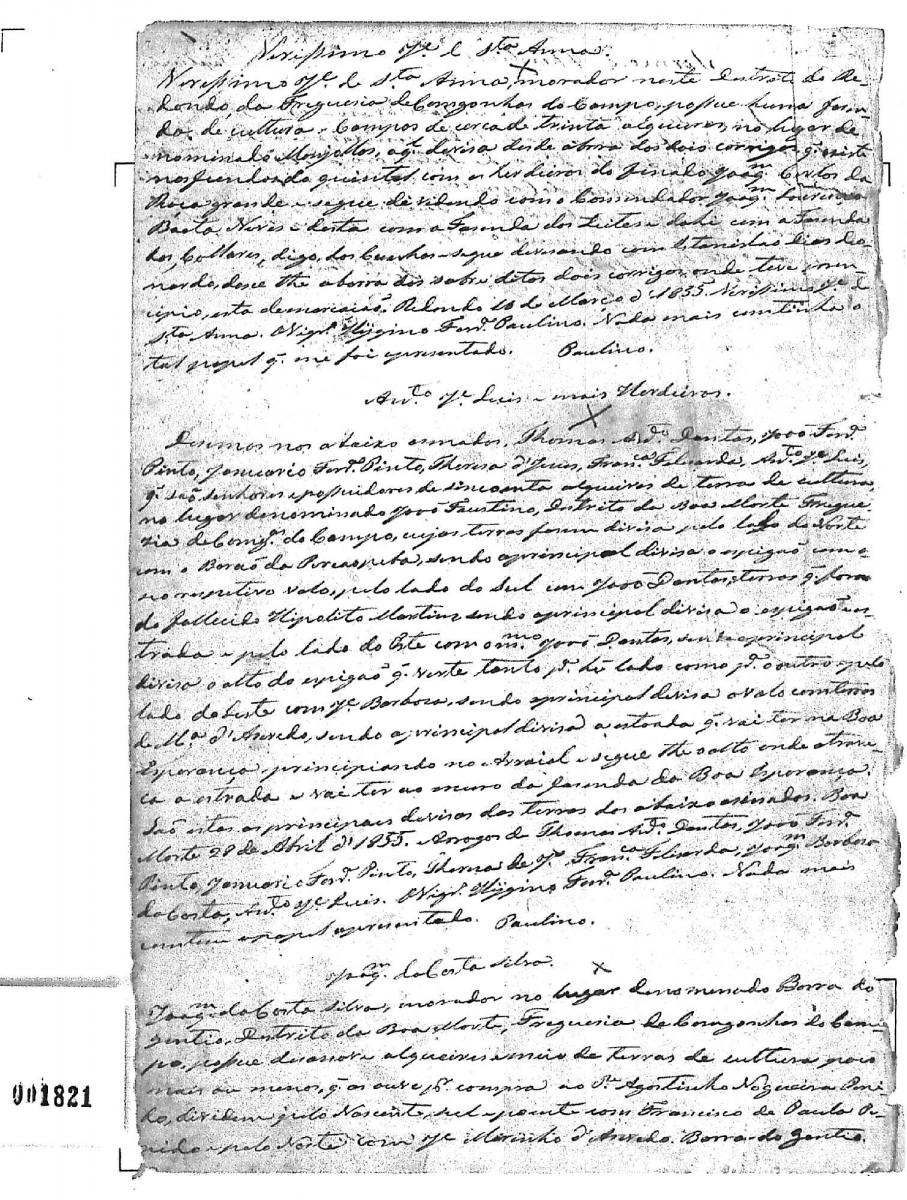 Verissimo Je. de Sta Anna.
Verissimo Je. de Sta Anna, morador neste Destrito do Re-
dondo, da Freguesia de Congonhas do Campo, possue huma fasen-
da de cultura e Campos de cerca de trinta alqueires, no lugar de
nominado Monjollos, a qł devisa desde abarra dos dois corrigos q. existe
nos fundos do quintal com os herdeiros do finado Joaqm. Carlos da
Roça grande e segue dividindo com o Comendador Joaqm. Lourenço
Baeta Neves e desta com a Fasenda dos Leites e dahi com a Fasenda
dos Collares, digo, dos Cunhas e segue devisando com Estanislao Dias
nardo, desce the abarra dos sobre ditos dois corrigos onde teve
cipio, esta demarcação. Redondo 10 de Março d' 1855. Verissimo Je. de
Sta Anna. O Vigr.o Hyggino Ferr.a Paulino. Nada mais continha o
tal papel q. me foi apresentado. Paulino.
Anto. Je. Luis e mais Herdeiros.
Disemos nos abaixo asinados, Thomas Dantas, João Ferra.
Pinto, Januario Ferra. Pinto, Theresa d'Jesus, Franca. Felisarda, Anto. Je. Luis,
q. são senhores e possuidores de sincoenta alqueires de terra de cultura,
no lugar denominado João Faustino, Destrito da Boa Morte Fregue
zia de Congs. do Campo, cujas terras fazem divisa pelo lado do Norte
com o Barão da Paraopeba, sendo aprincipal divisa o espigão com o
seo respetivo valo, pelo lado do Sul com João Dantas, terras q. forão
do fallecido Hipolito Martins sendo aprincipal divisa o espigão es
trada e pelo lado do Este com o mmo. João Dantas, sendo aprincipal
divisa o alto do espigão q. verte tanto pa. hũ lado como pa. o outro e pelo
lado do Oeste com Je. Barbosa, sendo aprincipal divisa o valo com terras
de Ma. d'Asevedo, sendo a principal divisa a estrada q. vai ter na Boa
Esperança, principiando no Arraial e segue the o alto onde atrave
ça a estrada e vai ter ao muro da fasenda da Boa Esperança.
São estas as principaes divisas das terras dos abaixo asinados. Boa
Morte 28 de Abril d' 1855. Arrogos de Thomas Dantas, João Ferra.
Pinto, Januario Ferra. Pinto, Theresa de Js., Franca. Felisarda, Joaqm. Barbosa
da Costa, Anto. Je. Luis. O Vigr.o Hyggino Ferra. Paulino. Nada mais
contem o papel apresentado. Paulino.
Joaqm. da Costa Silva.
Joaqm. da Costa Silva, morador no lugar denomenado Barra do
Gentio, Destrito da Boa Morte, Freguesia de Congonhas do Cam
po, possue desanove alqueires e meio de terras de cultura poco
mais ou menos, q. as ouve pr. compra ao Sr. Agostinho Nogueira Peni
do, dividem pelo Nascente, sul e poente com Francisco de Paula Pe-
nido e pelo Norte com Je. Marinho d'Asevedo. Barra do Gentio
001821